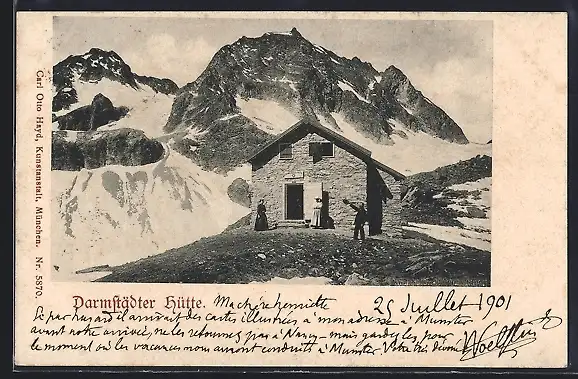 Carl Otto Hayd, Kunstanstalt, München. Nr. 5870.
Darmstädter Hütte. Ma chère Henriette 25 Juillet 1901
Si par hasard il arrivait des cartes illustrées à mon adresse à Munster
avant notre arrivée, ne les retournez pas à Nancy - mais gardez les pour
le moment où les vacances nous auront conduits à Munster. Votre très dévoué